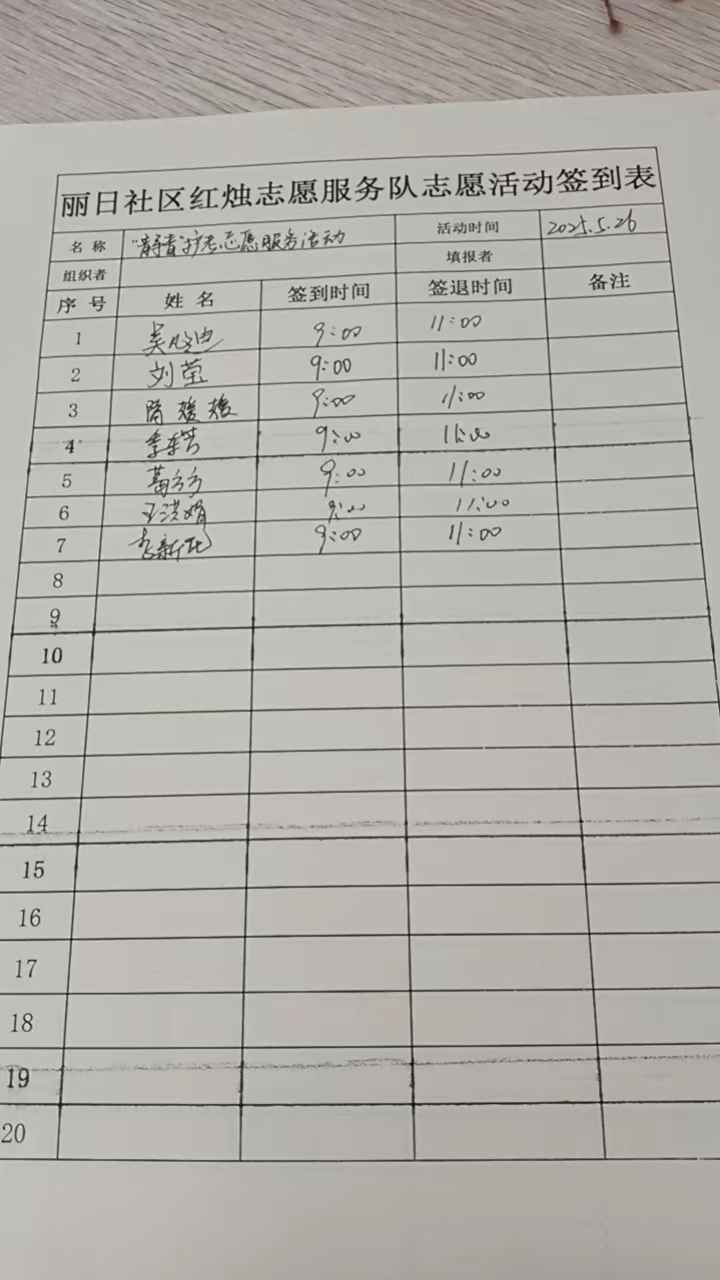 丽日社区红烛志愿服务队志愿活动签到表
名 称 "静音"护考志愿服务活动 活动时间 2025.5.26
组织者 填报者
序 号 姓 名 签到时间 签退时间 备注
1 9:00 11:00
2 刘莹 9:00 11:00
3 隋媛媛 9:00 11:00
4 9:00 11:00
5 葛方方 9:00 11:00
6 王洪娟 9:00 11:00
7 9:00 11:00
8
9
10
11
12
13
14
15
16
17
18
19
20